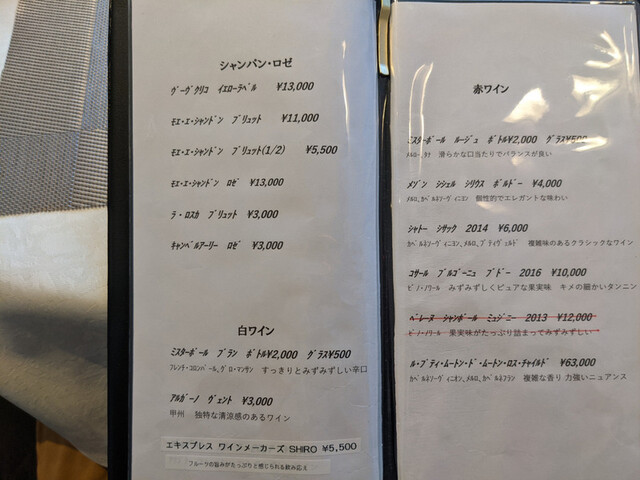 シャンパン・ロゼ
ヴーヴクリコ イエローラベル ¥13,000
モエ・エ・シャンドン ブリュット ¥11,000
モエ・エ・シャンドン ブリュット(1/2) ¥5,500
モエ・エ・シャンドン ロゼ ¥13,000
ラ・ロスカ ブリュット ¥3,000
キャンベルアーリー ロゼ ¥3,000
白ワイン
ミスターボール ブラン ボトル¥2,000 グラス¥500
フレンチ・コロンバール、グロ・マンサン すっきりとみずみずしい辛口
アルガーノ ヴェント ¥3,000
甲州 独特な清涼感のあるワイン
エキスプレス ワインメーカーズ SHIRO ¥5,500
フルーツの旨みがたっぷりと感じられる飲み応え
赤ワイン
ミスターボール ルージュ ボトル¥2,000 グラス¥500
メルロ、タナ 滑らかな口当たりでバランスが良い
メゾン シシェル シリウス ボルドー ¥4,000
メルロ、カベルネソーヴィニヨン 個性的でエレガントな味わい
シャトー シサック 2014 ¥6,000
カベルネソーヴィニヨン、メルロ、プティヴェルド 複雑味のあるクラシックなワイン
コサール ブルゴーニュ ブドー 2016 ¥10,000
ピノ・ノワール みずみずしくピュアな果実味 キメの細かいタンニン
ペレーヌ シャンボール ミュジニー 2013 ¥12,000
ピノ・ノワール 果実味がたっぷり詰まってみずみずしい
ル・プティ・ムートン・ド・ムートン・ロス・チャイルド ¥63,000
カベルネソーヴィニオン、メルロ、カベルネフラン 複雑な香り 力強いニュアンス